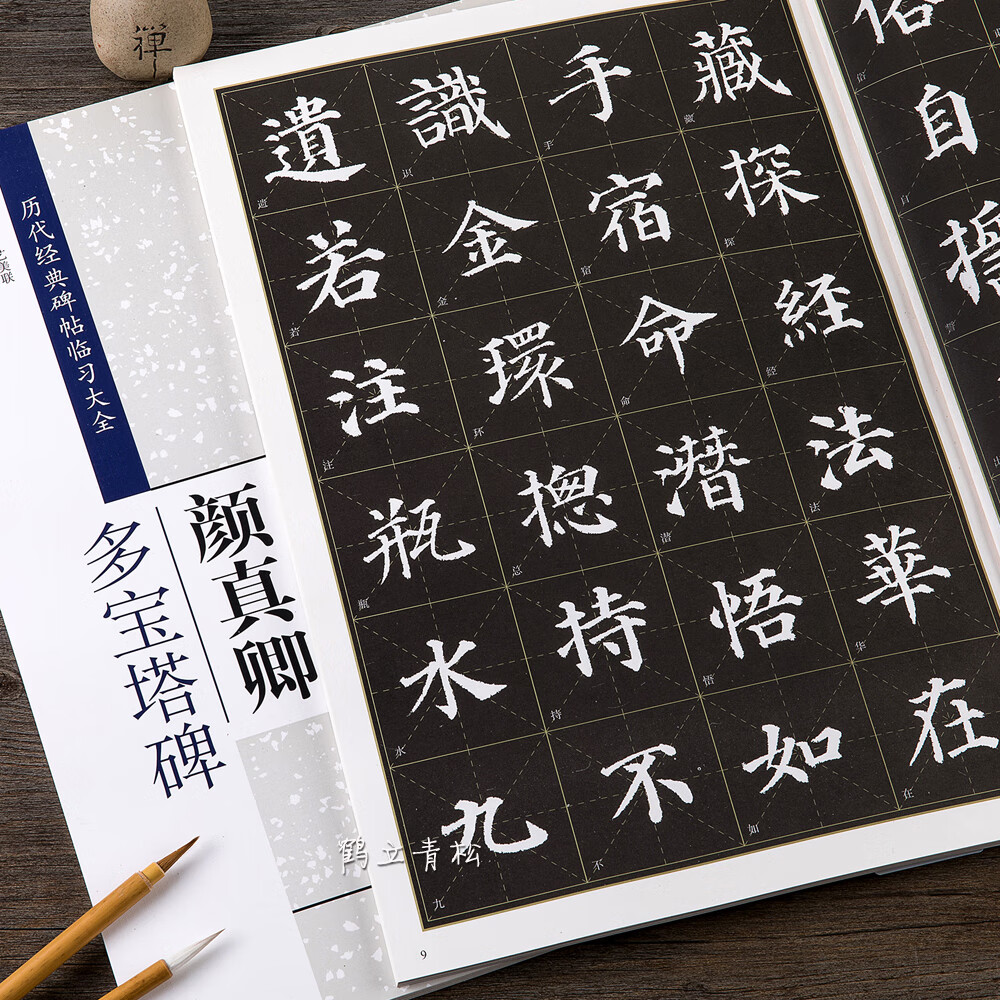 禅
历代经典碑帖临习大全
艺美联
颜真卿
多宝塔碑
俗自
俗自
藏探經法華在
藏探经法华在
手宿命潛悟如
手宿命潜悟如
識金環揔持不
识金环总持不
遺若注瓶水九
遗若注瓶水九
9
鹤立青松